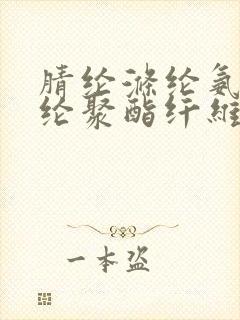 腈纶涤纶氨
纶聚酯纤维
一本盗